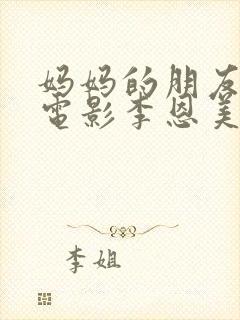 妈妈的朋友
電影李恩美
李姐